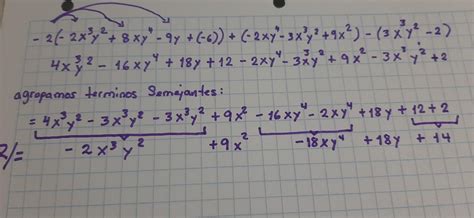 -2(-2x³y² + 8xy⁴ - 9y + (-6)) + (-2xy⁴ - 3x³y² + 9x²) - (3x³y² - 2)
4x³y² - 16xy⁴ + 18y + 12 - 2xy⁴ - 3x³y² + 9x² - 3x³y² + 2
agrupamos terminos Semejantes:
= 4x³y² - 3x³y² - 3x³y² + 9x² - 16xy⁴ - 2xy⁴ + 18y + 12 + 2
R/= - 2x³y² + 9x² - 18xy⁴ + 18y + 14